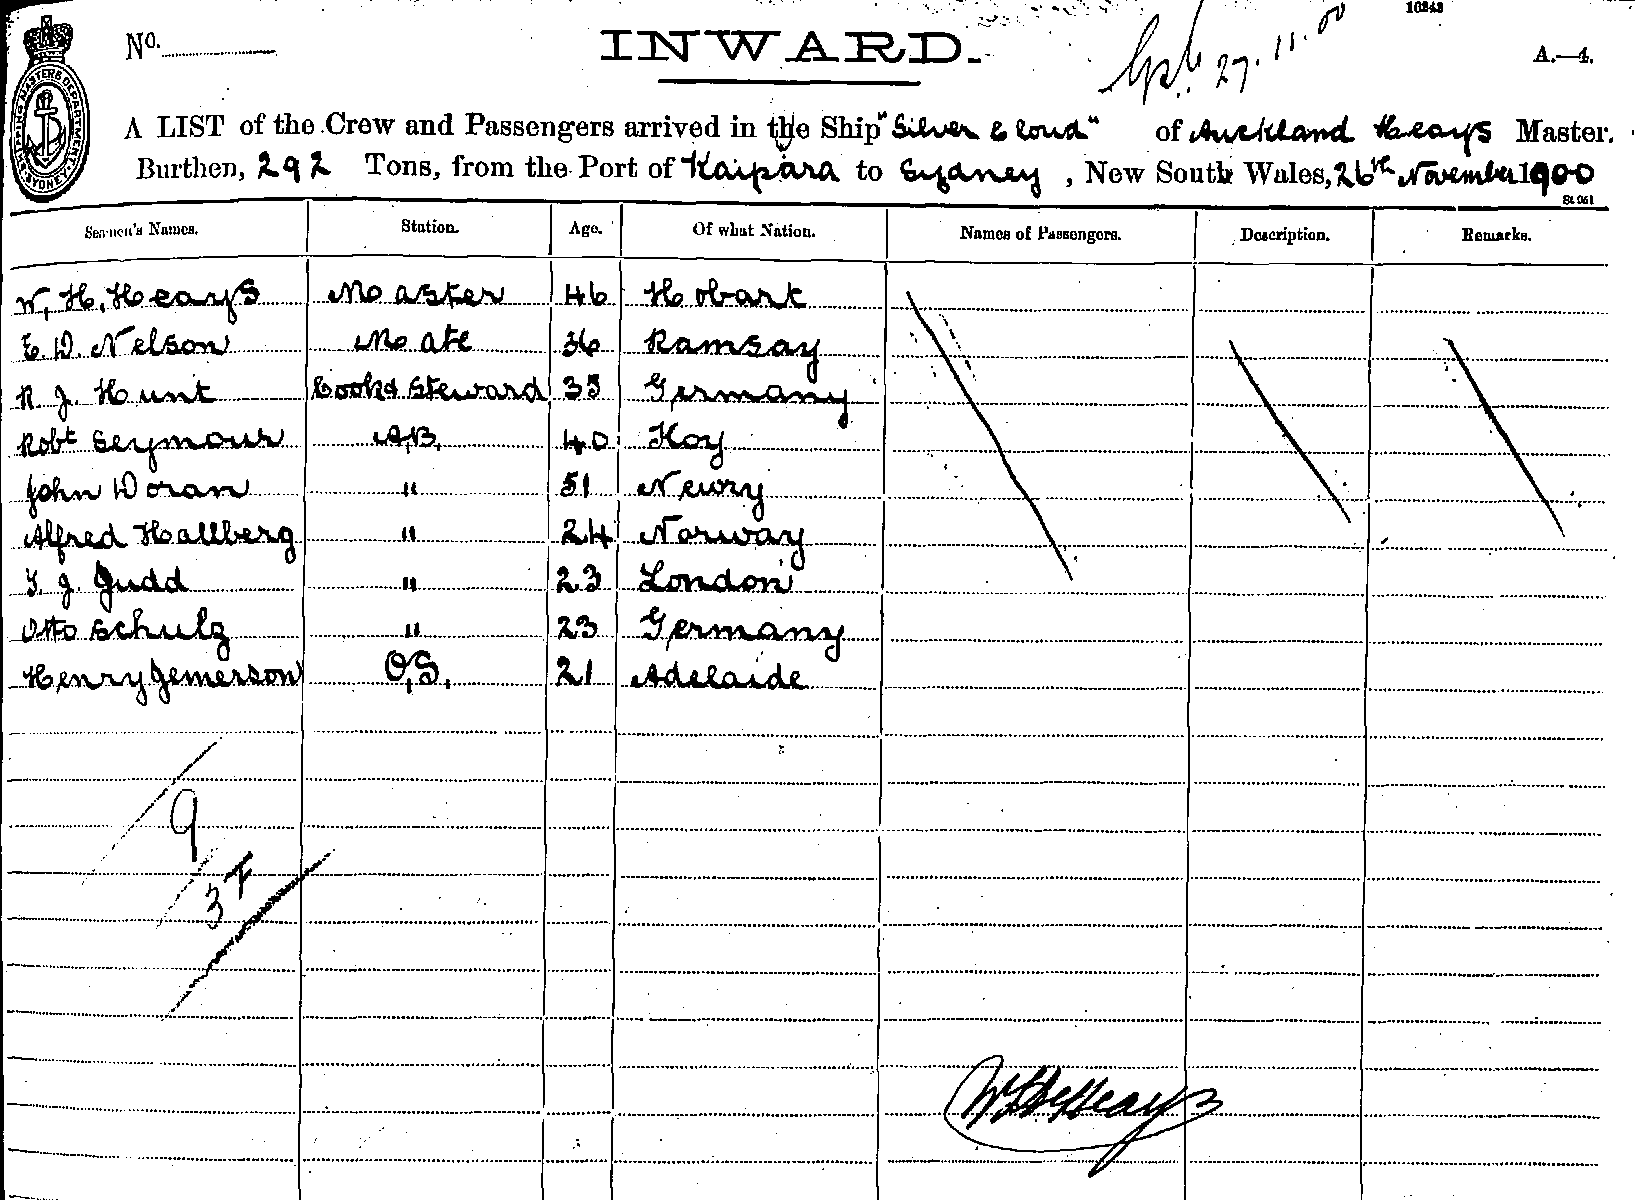 10243
No.
INWARD.
27.11.00
A.—4.
SHIPPING MASTERS DEPARTMENT SYDNEY
A LIST of the Crew and Passengers arrived in the Ship "Silver Cloud" of Auckland Heays Master.
Burthen, 292 Tons, from the Port of Kaipara to Sydney, New South Wales, 26th November 1900
Seamen's Names. Station. Age. Of what Nation. Names of Passengers. Description. Remarks.
W. H. Heays Master 46 Hobart
E. D. Nelson Mate 36 Ramsay
R. J. Hunt Cook & Steward 35 Germany
Robt Seymour A.B. 40 Hoy
John Doran " 51 Newry
Alfred Hallberg " 24 Norway
T. J. Judd " 23 London
Otto Schulz " 23 Germany
Henry Jemerson O.S. 21 Adelaide
9
3 F
W H Heays